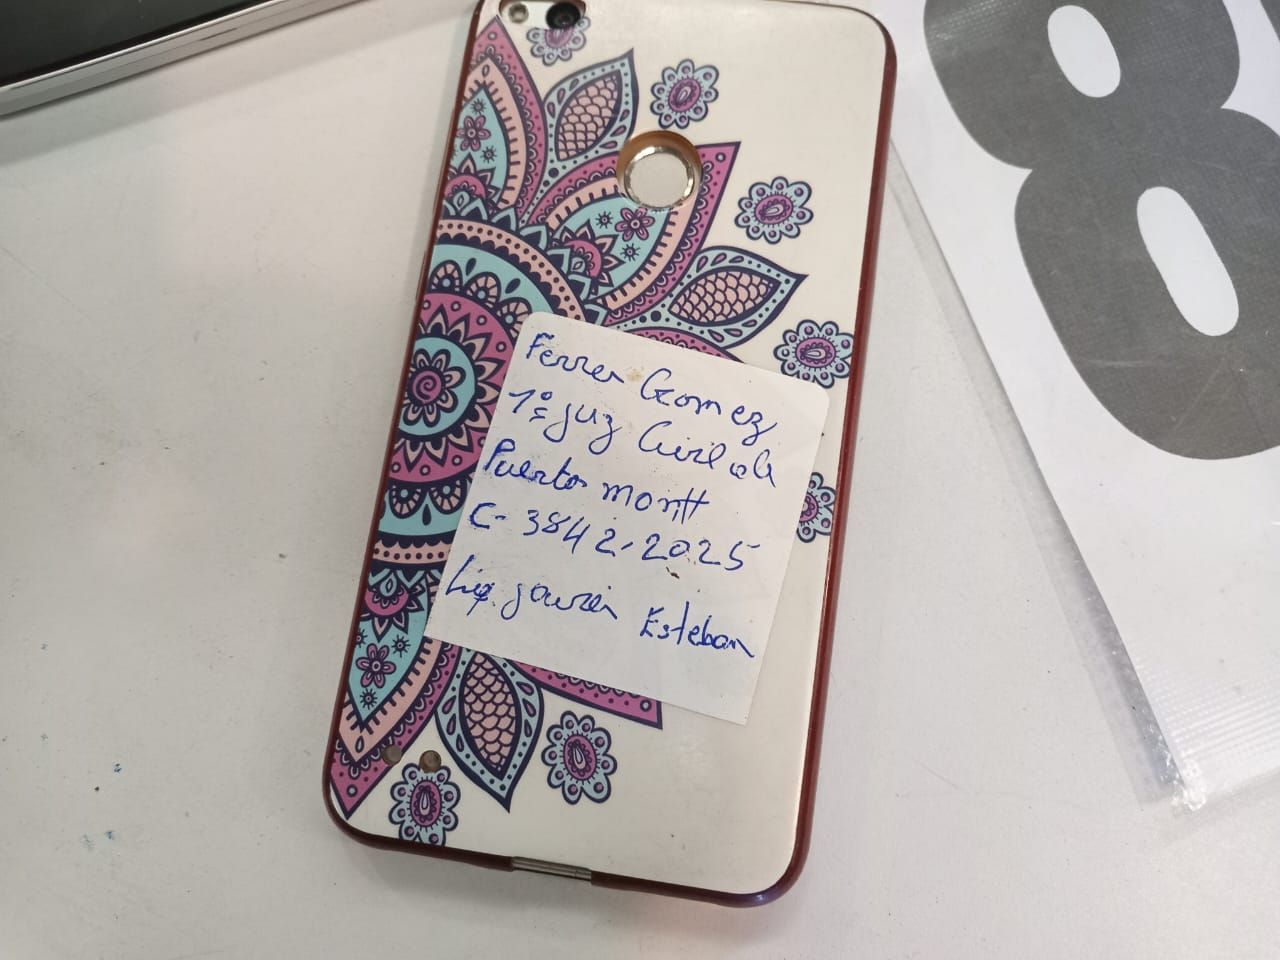 Ferrer Gomez
1º juz Civil de
Puerto montt
C-3842-2025
Liq. Esteban
8